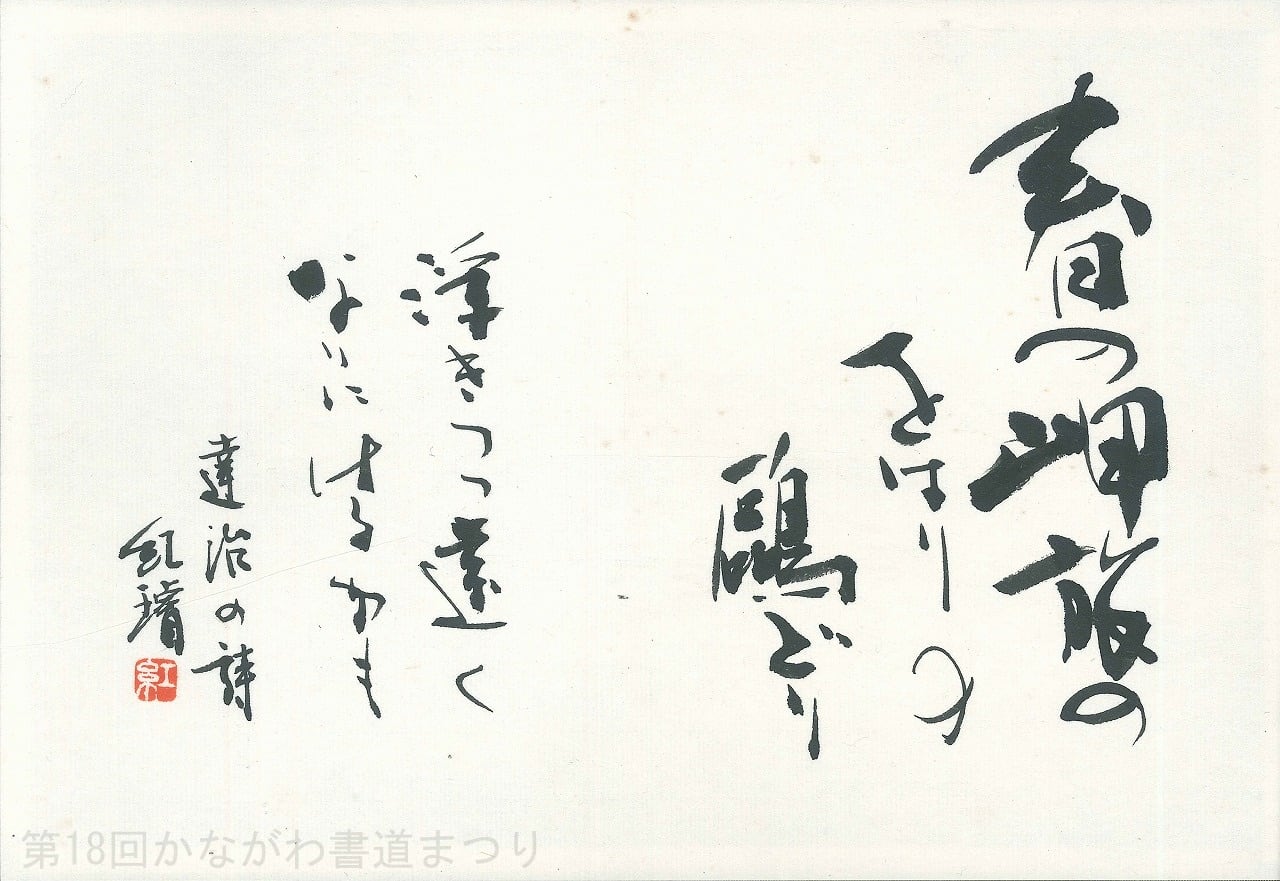 春の岬旅の
をはりの
鷗どり
浮きつつ遠く
なりにけるかも
達治の詩
紅
紅
第18回かながわ書道まつり